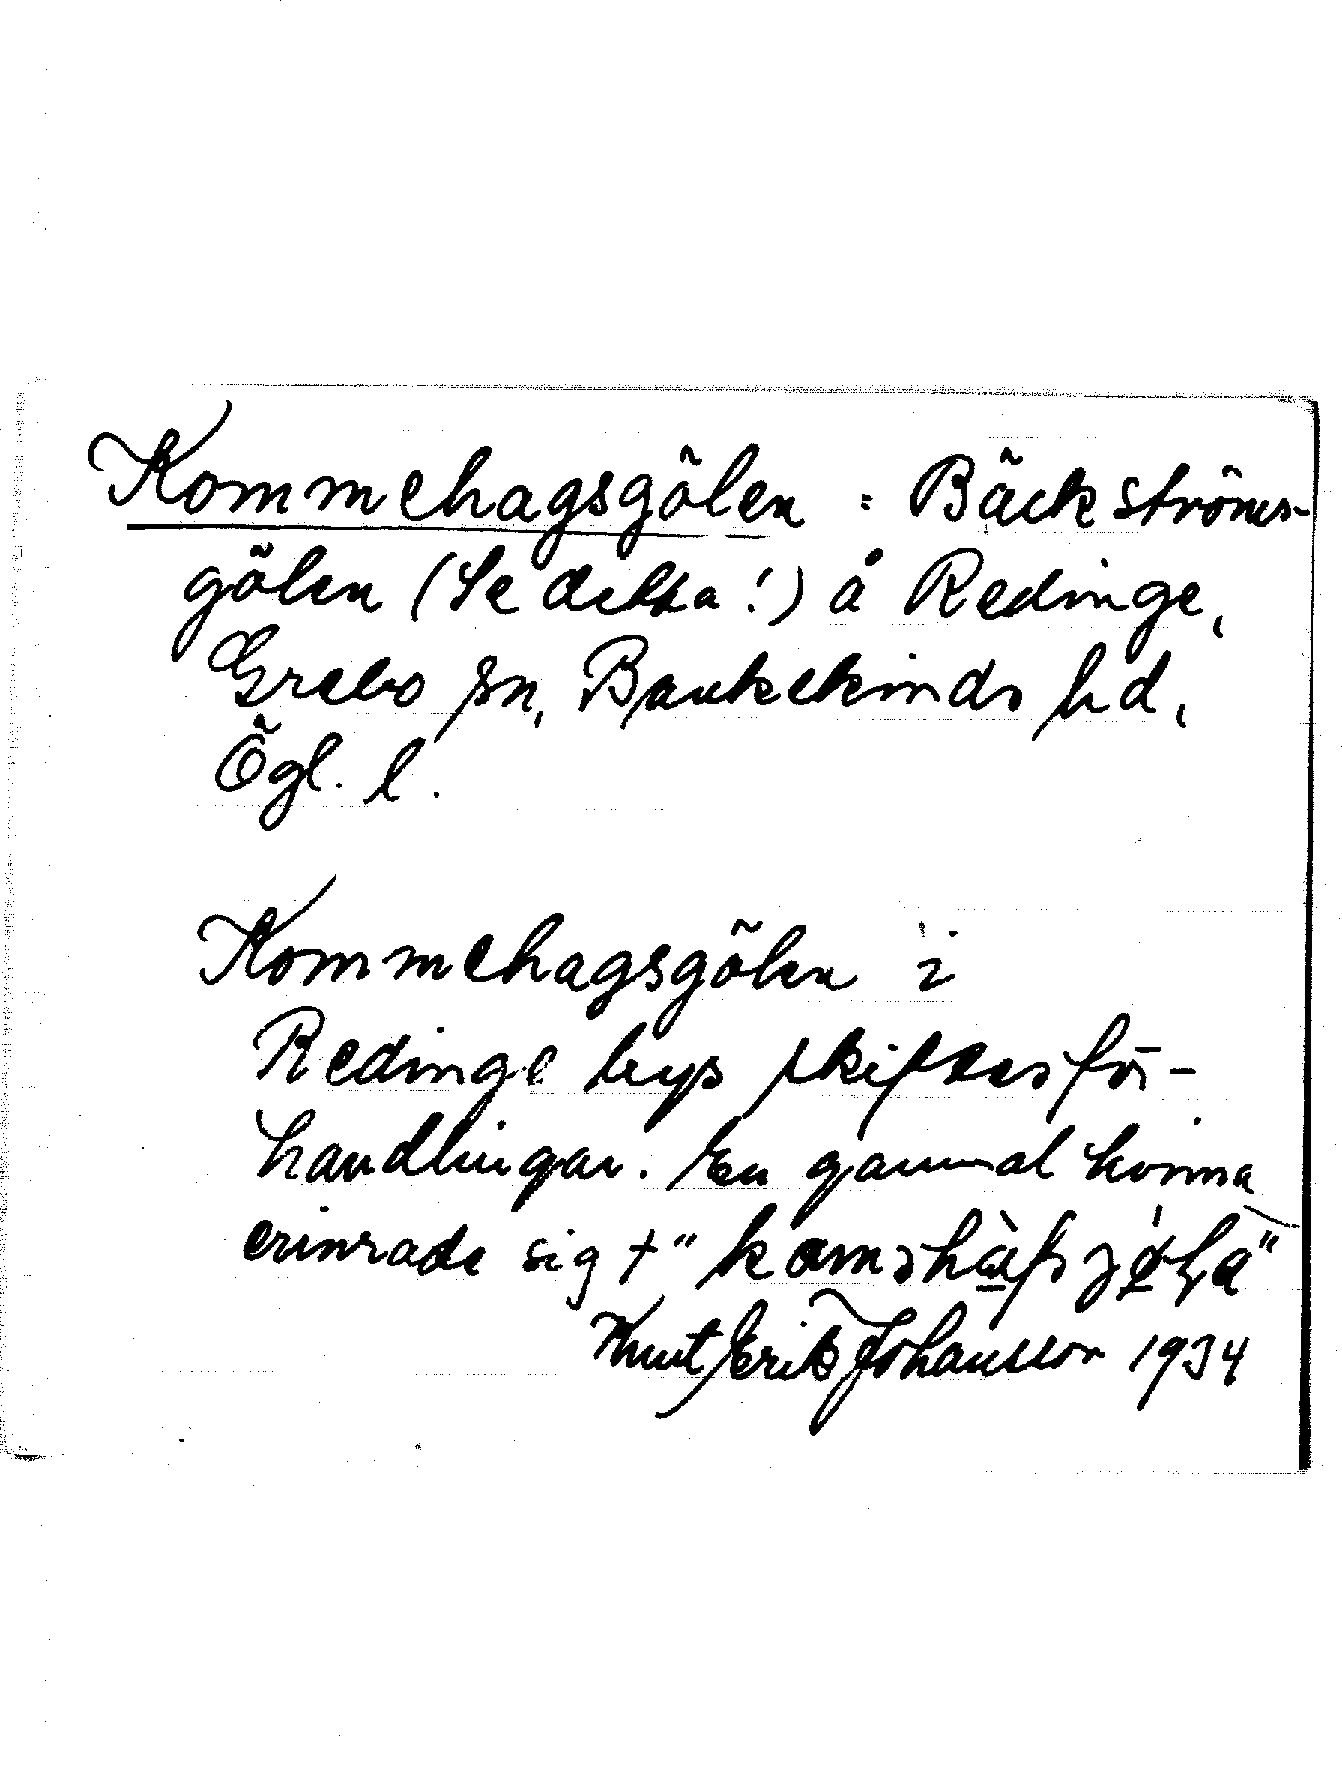 Kommehagsgölen : Bäckströms-
gölen (Se detta!) å Redinge,
Grebo sn, Bankekinds hd,
Ögl. l.
Kommehagsgölen i
Redinge bys skiftesför-
handlingar. En gammal kvinna
erinrade sig +"
Knut Erik Johansson 1934